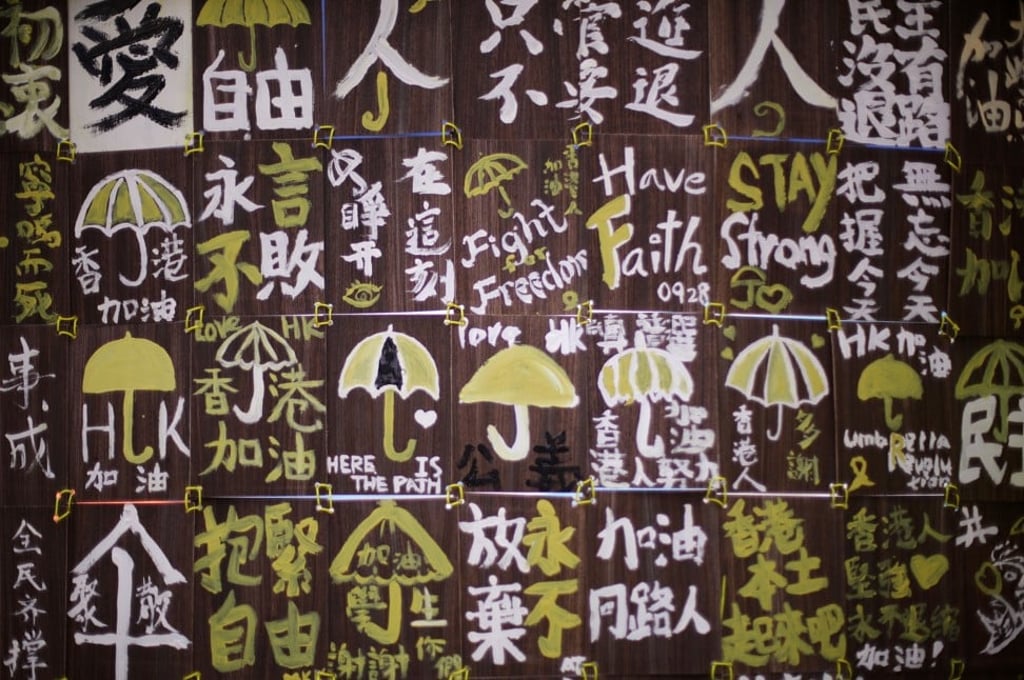 初衷
愛
自由
人
只管進
不要退
人
民主
沒有
退路
加油
寧鳴而死
香港
加油
永不
言敗
在這刻
睜开
香港人
加油
Fight
for
Freedom
Have
Faith
0928
STAY
Strong
無忘今天
把握今天
香港
加
事成
HK
加油
Love HK
香港
加油
HERE IS
THE PATH
love HK
公義
真普選
加油
香港人努力
香港人
多謝
HK 加油
umbRella
Revolution
民
全民齐撑
傘
聚散
抱緊
自由
加油
學生
謝謝你們
永不
放棄
加油
同路人
香港
本土
起來吧
香港人
永不退縮
加油!